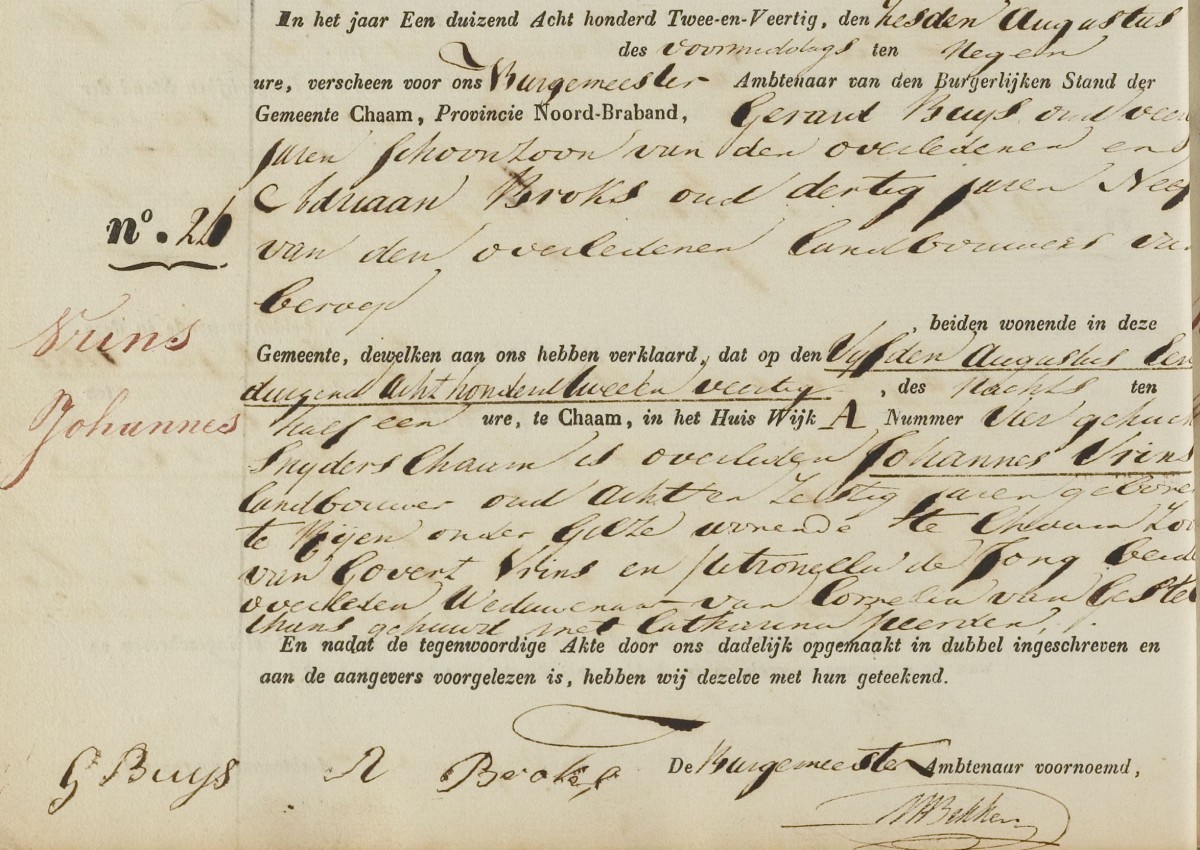 In het jaar Een duizend Acht honderd Twee-en-Veertig, den zesden Augustus
des voormiddags ten Negen
ure, verscheen voor ons Burgemeester Ambtenaar van den Burgerlijken Stand der
Gemeente Chaam, Provincie Noord-Braband, Gerard Buys oud veer
jaren schoonzoon van den overledenen en
Adriaan Broks oud dertig jaren Neef
van den overledenen landbouwers van
beroep
, beiden wonende in deze
Gemeente, dewelken aan ons hebben verklaard, dat op den Vyfden Augustus Een
duizend Acht honderd tweeën veertig , des Nachts ten
half een ure, te Chaam, in het Huis Wijk A Nummer Vier gehuch
Snyders Chaam is overleden Johannes Vrins
landbouwer oud acht en Zestig jaren gebore
te Rijen onder Gilze wonende te Chaam Zoo
van Govert Vrins en Petronella de Jong beid
overleden Weduwenaar van Cornelia van Geste
thans gehuwd met Catharina Peerden,
En nadat de tegenwoordige Akte door ons dadelijk opgemaakt in dubbel ingeschreven en
aan de aangevers voorgelezen is, hebben wij dezelve met hun geteekend.
nº. 2
Vrins
Johannes
G Buys A Broks De Burgemeester Ambtenaar voornoemd,